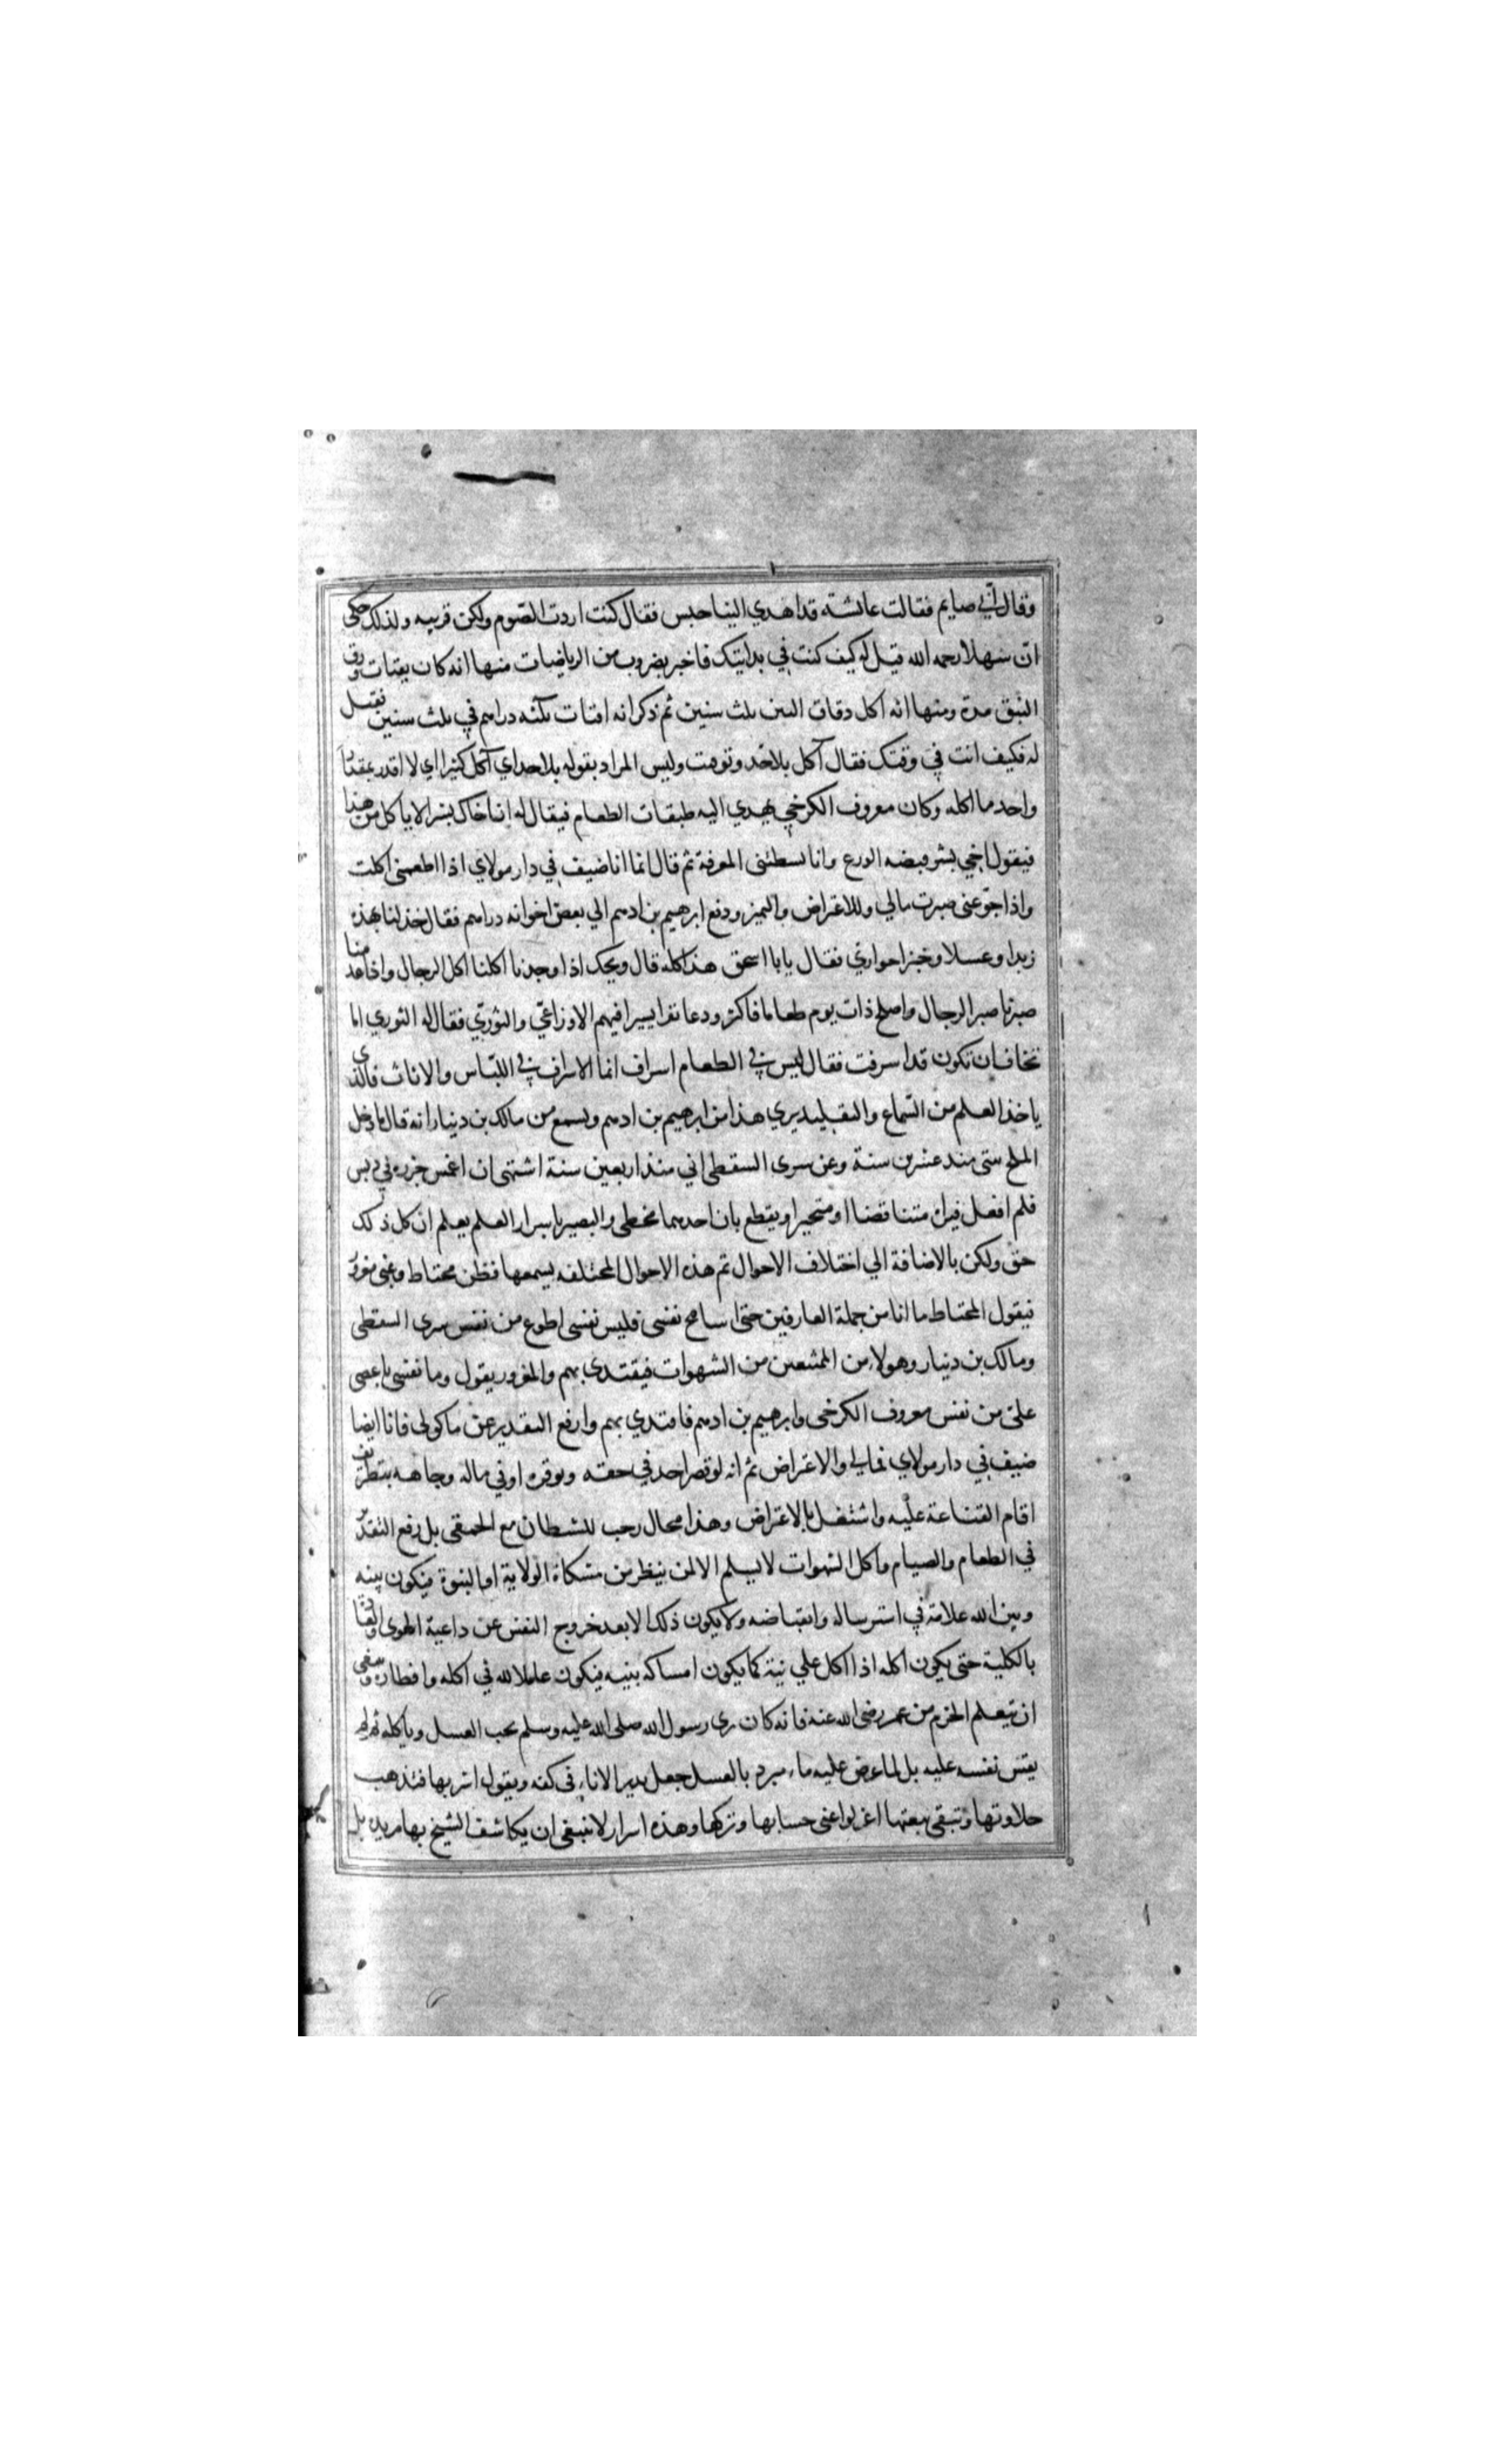 وقال اني صايم فقالت عائشة قد اهدي الينا حبس فقال كنت اردت الصوم ولكن قربيه ولذلك حكي
ان سهلا رحمه الله قيل له كيف كنت في بدايتك فاخبر بضروب من الرياضيات منها انه كان يقتات ورق
النبق مدة ومنها انه اكل دقاق التبن ثلث سنين ثم ذكر انه اقتات بثلثه دراهم في ثلث سنين فقيل
له فكيف انت في وقتك فقال آكل بلا حد وتوقيت وليس المراد بقوله بلا حد اي آكل كثيرا اي لا اقدر بمقدار
واحد ما اكله وكان معروف الكرخي يهدي اليه طبقات الطعام فيقال له ان اخاك بشرا لا ياكل من هذا
فيقول اخي بشر قبضه الورع وانا بسطتني المعرفة ثم قال انما انا ضيف في دار مولاي اذا اطعمني اكلت
واذا جوعني صبرت مالي وللاعتراض والتميز ودفع ابرهيم بن ادهم الي بعض اخوانه دراهم فقال خذ لنا بهذه
زبدا وعسلا وخبزا حواري فقال يابا اسحق هذا كله قال ويحك اذا وجدنا اكلنا اكل الرجال واذا عدمنا
صبرنا صبر الرجال واصلح ذات يوم طعاما فاكثر ودعا نفرا يسيرا فيهم الاوزاعي والثوري فقال له الثوري اما
تخاف ان تكون قد اسرفت فقال ليس في الطعام اسراف انما الاسراف في اللباس والاثاث فالذي
ياخذ العلم من السماع والتقليد يري هذا من ابرهيم بن ادهم ويسمع من مالك بن دينار انه قال ما دخل
الملح بيتى منذ عشرين سنة وعن سرى السقطى اني منذ اربعين سنة اشتهى ان اغمس جزره في دبس
فلم افعل فيراه متناقضا او متحيرا ويقطع بان احدهما مخطى والبصير باسرار العلم يعلم ان كل ذلك
حق ولكن بالاضافة الي اختلاف الاحوال ثم هذه الاحوال المختلفه يسمعها فطن محتاط وغبى مغرور
فيقول المحتاط ما انا من جملة العارفين حتى اسامح نفسى فليس نفسى اطوع من نفس سرى السقطى
ومالك بن دينار وهولاء من الممتنعين من الشهوات فيقتدى بهم والمغرور يقول وما نفسى باعصى
على من نفس معروف الكرخى وابرهيم بن ادهم فاقتدي بهم وارفع التقدير عن ماكولى فانا ايضا
ضيف في دار مولاي فمالي والاعتراض ثم انه لو قصر احد في حقه وتوقره او في ماله وجاهه بتطريف
اقام القناعة عليه واشتغل بالاعتراض وهذا مجال رحب للشطان مع الحمقى بل رفع التقدير
في الطعام والصيام واكل الشهوات لا يسلم الا لمن ينظر من مشكاة الولاية او النبوة فيكون بينه
وبين الله علامة في استرساله وانقباضه ولا يكون ذلك الا بعد خروج النفس عن داعية الهوى والعادة
بالكلية حتى يكون اكله اذا اكل علي نية كما يكون امساكه بنيه فيكون عاملا لله في اكله وافطاره وينبغى
ان يتعلم الحزم من عمر رضى الله عنه فانه كان يرى رسول الله صلى الله عليه وسلم يحب العسل وياكله ثم لم
يقس نفسه عليه بل لما عرض عليه ماء مبرد بالعسل جعل يدير الاناء في كفه ويقول اشربها فتذهب
حلاوتها وتبقى تبعتها اعزلوا عنى حسابها وتركها وهذه اسرار لا ينبغى ان يكاشف الشيخ بها مريده بل